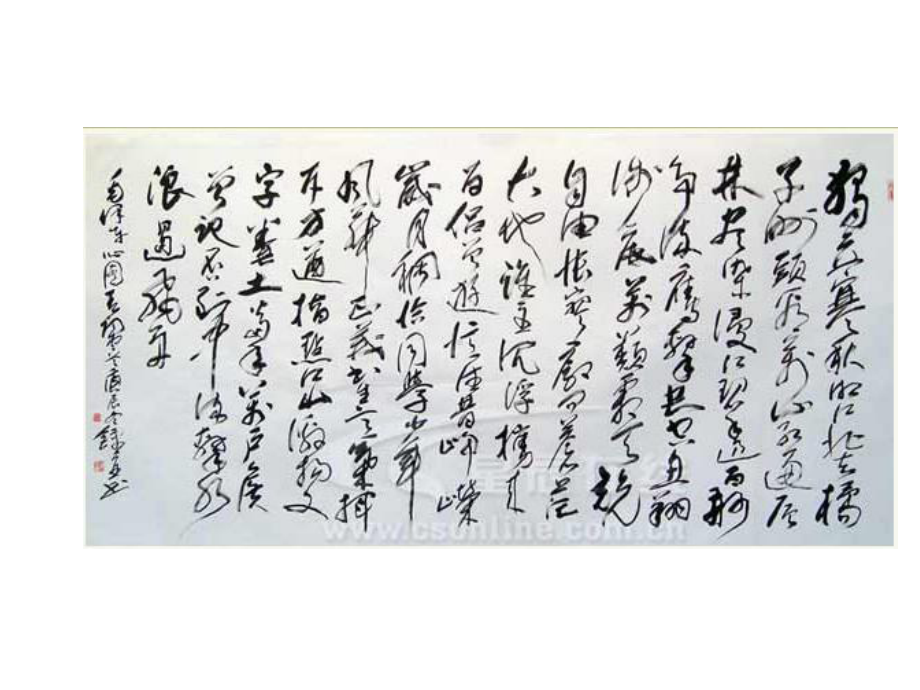 獨立寒秋湘江北去橘
子洲頭看萬山红遍层
林尽染漫江碧透百舸
争流鹰擊长空鱼翔
浅底萬類霜天競
自由悵寥廓问苍茫
大地誰主沉浮攜来
百侣曾遊忆往昔峥嵘
歲月稠恰同學少年
风华正茂书生意氣揮
斥方遒指點江山激扬文
字糞土当年萬户侯
曾记否到中流擊水
浪遏飛舟
毛泽东沁园春长沙 庚辰冬 书
星辰在线
www.csonline.com.cn